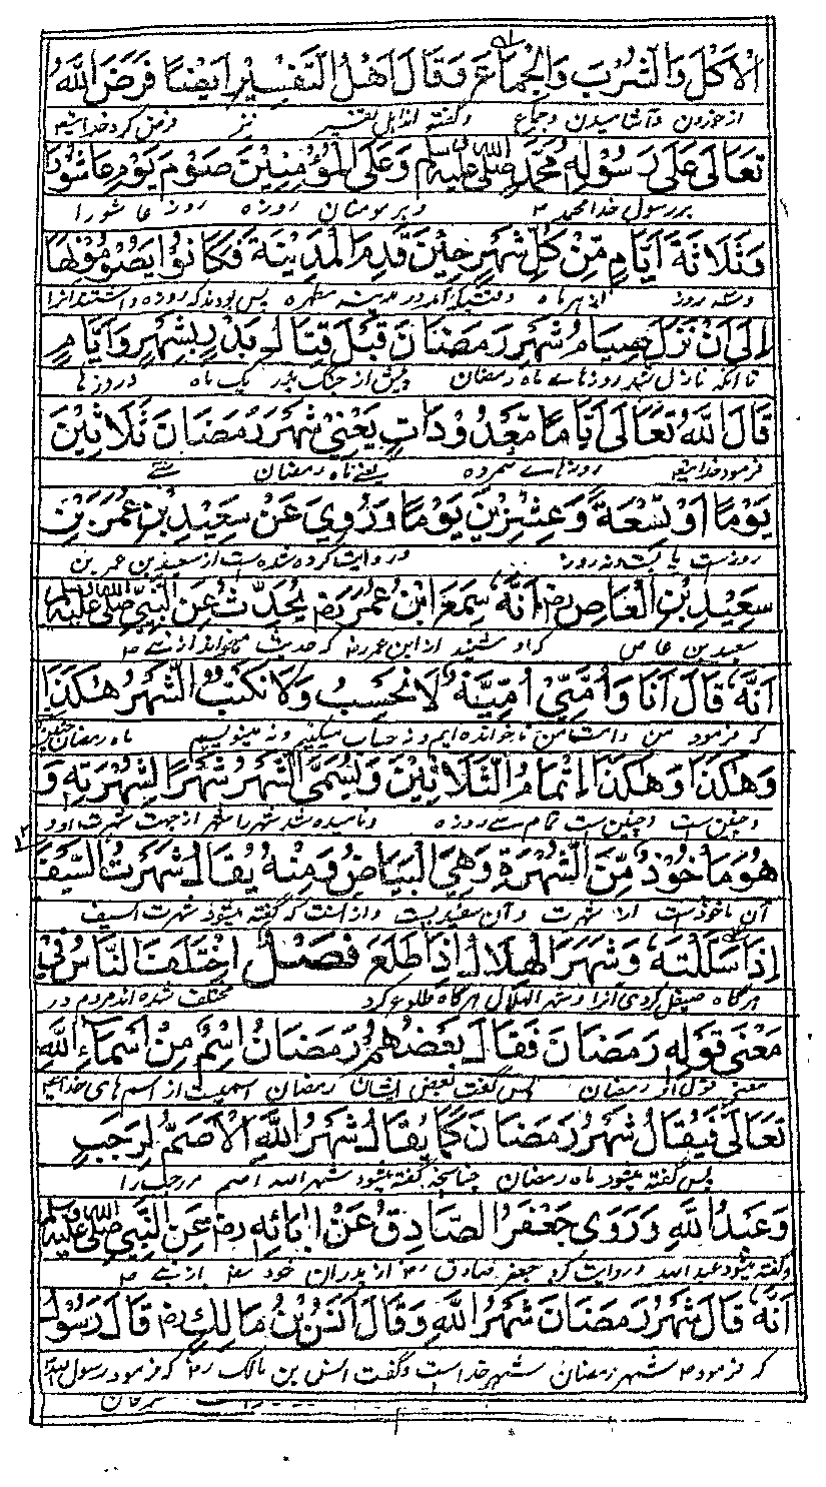 الْاَكْلَ وَالشُّرْبَ وَالْجِمَاعَ وَقَالَ اَهْلُ التَّفْسِيْرِ اَيْضًا فَرَضَ اللّٰهُ
از خوردن و آشامیدن و جماع و گفته اند اهل تفسیر نیز فرض کرد خدایتع
تَعَالَى عَلَى رَسُوْلِهٖ مُحَمَّدٍ صلى الله عليه وسلم وَعَلَى الْمُؤْمِنِيْنَ صَوْمَ يَوْمِ عَاشُوْرَا
بر رسول خدا محمد ص و بر مومنان روزه روز عاشورا
وَثَلَاثَةَ اَيَّامٍ مِّنْ كُلِّ شَهْرٍ حِيْنَ قَدِمَ الْمَدِيْنَةَ فَكَانُوْا يَصُوْمُوْنَهَا
و سه روز از هر ماه وقتیکه آمد در مدینه مطهره پس بودند که روزه داشتند آنرا
اِلَى اَنْ نَزَلَ صِيَامُ شَهْرِ رَمَضَانَ قَبْلَ قِتَالِ بَدْرٍ بِشَهْرٍ وَاَيَّامٍ
تا آنکه نازل شد روزهاے ماه رمضان پیش از جنگ بدر یک ماه و روزها
قَالَ اللّٰهُ تَعَالَى اَيَّامًا مَّعْدُوْدَاتٍ يَعْنِيْ شَهْرَ رَمَضَانَ ثَلَاثِيْنَ
فرمود خدایتع روزهاے شمرده یعنے ماه رمضان سے
يَوْمًا اَوْ تِسْعَةً وَعِشْرِيْنَ يَوْمًا وَرُوِيَ عَنْ سَعِيْدِ بْنِ عُمَرَ بْنِ
روز است یا بست و نه روز و روایت کرده شده است از سعید بن عمر بن
سَعِيْدِ بْنِ الْعَاصِ رض اَنَّهٗ سَمِعَ ابْنَ عُمَرَ رض يُحَدِّثُ عَنِ النَّبِيِّ صلى الله عليه وسلم
سعید بن عاص که او شنید از ابن عمر رض که حدیث میخواند از نبے ص
اَنَّهٗ قَالَ اَنَا وَاُمَّتِيْ اُمِّيَّةٌ لَا نَحْسِبُ وَلَا نَكْتُبُ الشَّهْرُ هٰكَذَا
که فرمود من و امت من ناخوانده ایم و نه حساب میکنیم و نه مینویسیم ماه رمضان چنین
وَهٰكَذَا وَهٰكَذَا اِتْمَامُ الثَّلَاثِيْنَ وَسُمِّيَ الشَّهْرُ شَهْرًا لِشُهْرَتِهٖ وَ
و چنین ست و چنین ست تمام سے روزه و نامیده شد شهر را شهر از جهت شهرت او و
هُوَ مَاخُوْذٌ مِّنَ الشُّهْرَةِ وَهِيَ الْبَيَاضُ وَمِنْهُ يُقَالُ شَهَرْتُ السَّيْفَ
آن ماخوذ ست از شهرت و آن سفیدیست و از آنست که گفته میشود شهرت السیف
اِذَا سَلَلْتَهٗ وَشَهَرَ الْهِلَالُ اِذَا طَلَعَ فَصْلٌ اخْتَلَفَ النَّاسُ فِيْ
هرگاه صیقل کردی آنرا و شهر الهلال هرگاه طلوع کرد مختلف شده اند مردم در
مَعْنَى قَوْلِهٖ رَمَضَانَ فَقَالَ بَعْضُهُمْ رَمَضَانُ اِسْمٌ مِنْ اَسْمَاءِ اللّٰهِ
معنی قول او رمضان پس گفت بعض ایشان رمضان اسمیست از اسم های خدایتع
تَعَالَى فَيُقَالُ شَهْرُ رَمَضَانَ كَمَا يُقَالُ شَهْرُ اللّٰهِ الْاَصَمُّ لِرَجَبٍ
پس گفته میشود ماه رمضان چنانچه گفته میشود شهر الله اصم مر رجب را
وَعَبْدُ اللّٰهِ وَرَوَى جَعْفَرُ الصَّادِقُ عَنْ اٰبَائِهٖ رض عَنِ النَّبِيِّ صلى الله عليه وسلم
و گفته میشود عبد الله و روایت کرد جعفر صادق رض از پدران خود رض از نبے ص
اَنَّهٗ قَالَ شَهْرُ رَمَضَانَ شَهْرُ اللّٰهِ وَقَالَ اَنَسُ بْنُ مَالِكٍ رض قَالَ رَسُوْلُ
که فرمود ص شهر رمضان شهر خدا است و گفت انس بن مالک رض که فرمود رسول الله